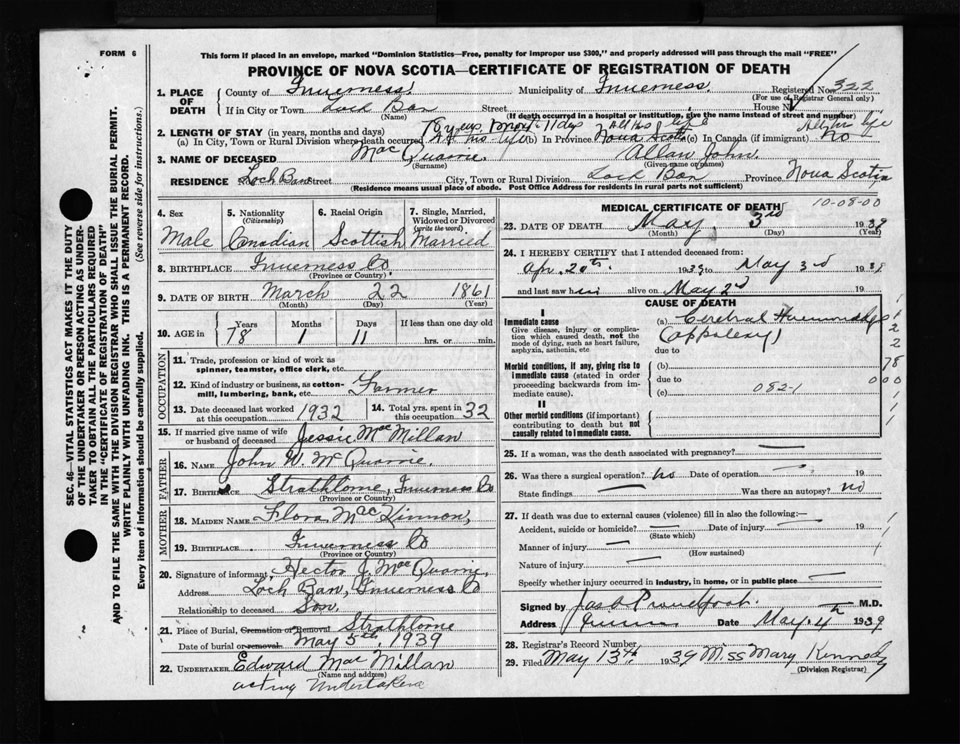 FORM 6
This form if placed in an envelope, marked "Dominion Statistics—Free, penalty for improper use $300," and properly addressed will pass through the mail "FREE"
PROVINCE OF NOVA SCOTIA—CERTIFICATE OF REGISTRATION OF DEATH
1. PLACE OF DEATH
County of Inverness Municipality of Inverness Registered No. 322
(For use of Registrar General only)
If in City or Town Loch Ban Street House No
(Name) (If death occurred in a hospital or institution, give the name instead of street and number)
2. LENGTH OF STAY (in years, months and days) 78 yrs, 1 mont 11 days All his life All his life
(a) In City, Town or Rural Division where death occurred All his life (b) In Province Nova Scotia (c) In Canada (if immigrant) no
3. NAME OF DECEASED Mac Quarrie Allan John
(Surname) (Given name or names)
RESIDENCE No. Loch Ban Street City, Town or Rural Division Loch Ban Province Nova Scotia
(Residence means usual place of abode. Post Office Address for residents in rural parts not sufficient)
4. Sex 5. Nationality (Citizenship) 6. Racial Origin 7. Single, Married, Widowed or Divorced (write the word)
Male Canadian Scottish Married
8. BIRTHPLACE Inverness Co
(Province or Country)
9. DATE OF BIRTH March 22 1861
(Month) (Day) (Year)
10. AGE in Years Months Days If less than one day old
78 1 11 hrs. or min.
OCCUPATION
11. Trade, profession or kind of work as spinner, teamster, office clerk, etc.
12. Kind of industry or business, as cotton-mill, lumbering, bank, etc. Farmer
13. Date deceased last worked at this occupation 1932 14. Total yrs. spent in this occupation 32
15. If married give name of wife or husband of deceased Jessie Mac Millan
FATHER
16. NAME John W. Mc Quarrie
17. BIRTHPLACE Strathlorne, Inverness Co
(Province or Country)
MOTHER
18. MAIDEN NAME Flora Mac Kinnon
19. BIRTHPLACE Inverness Co
(Province or Country)
20. Signature of informant Hector J. Mac Quarrie
Address Loch Ban, Inverness Co
Relationship to deceased Son
21. Place of Burial, Cremation or Removal Strathlorne
Date of burial or removal May 5th, 1939
22. UNDERTAKER Edward Mac Millan
(Name and address)
acting Undertaker
MEDICAL CERTIFICATE OF DEATH 10-08-00
23. DATE OF DEATH May 3rd 1939
(Month) (Day) (Year)
24. I HEREBY CERTIFY that I attended deceased from:
Apr. 20th 1939 to May 3rd 1939
and last saw him alive on May 2d 19
CAUSE OF DEATH
I
Immediate cause (a) Cerebral Haemorrhage
Give disease, injury or complication which caused death, not the mode of dying, such as heart failure, asphyxia, asthenia, etc (Appolexy)
due to
Morbid conditions, if any, giving rise to immediate cause (stated in order proceeding backwards from immediate cause). (b)
due to
(c) 082-1
II
Other morbid conditions (if important) contributing to death but not causally related to immediate cause.
1
2
2
78
000
1
1
1
25. If a woman, was the death associated with pregnancy?
26. Was there a surgical operation? no Date of operation 19
State findings Was there an autopsy? no
27. If death was due to external causes (violence) fill in also the following:—
Accident, suicide or homicide? Date of injury 19
(State which)
Manner of injury
(How sustained)
Nature of injury
Specify whether injury occurred in industry, in home, or in public place
Signed by Jas. A. Proudfoot M.D.
Address Date May 4th 1939
28. Registrar's Record Number
29. Filed May 13th 1939 Miss Mary Kennedy
(Division Registrar)
SEC. 46—VITAL STATISTICS ACT MAKES IT THE DUTY
OF THE UNDERTAKER OR PERSON ACTING AS UNDER-
TAKER TO OBTAIN ALL THE PARTICULARS REQUIRED
IN THE "CERTIFICATE OF REGISTRATION OF DEATH"
AND TO FILE THE SAME WITH THE DIVISION REGISTRAR WHO SHALL ISSUE THE BURIAL PERMIT.
WRITE PLAINLY WITH UNFADING INK. THIS IS A PERMANENT RECORD.
Every item of information should be carefully supplied. (See reverse side for instructions.)